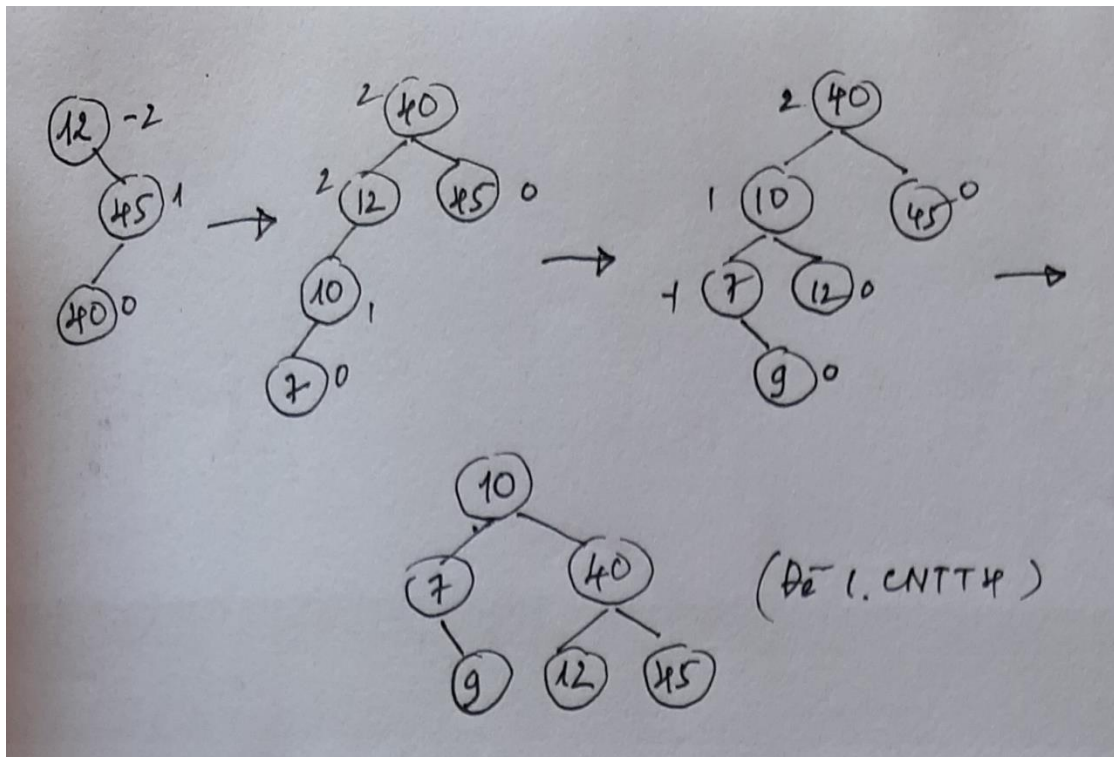 12 -2
45 1
40 0
2 40
2 12 45 0
10 1
7 0
2 40
1 10 45 0
-1 7 12 0
9 0
10
7 40
9 12 45
(Đề 1. CNTT4)